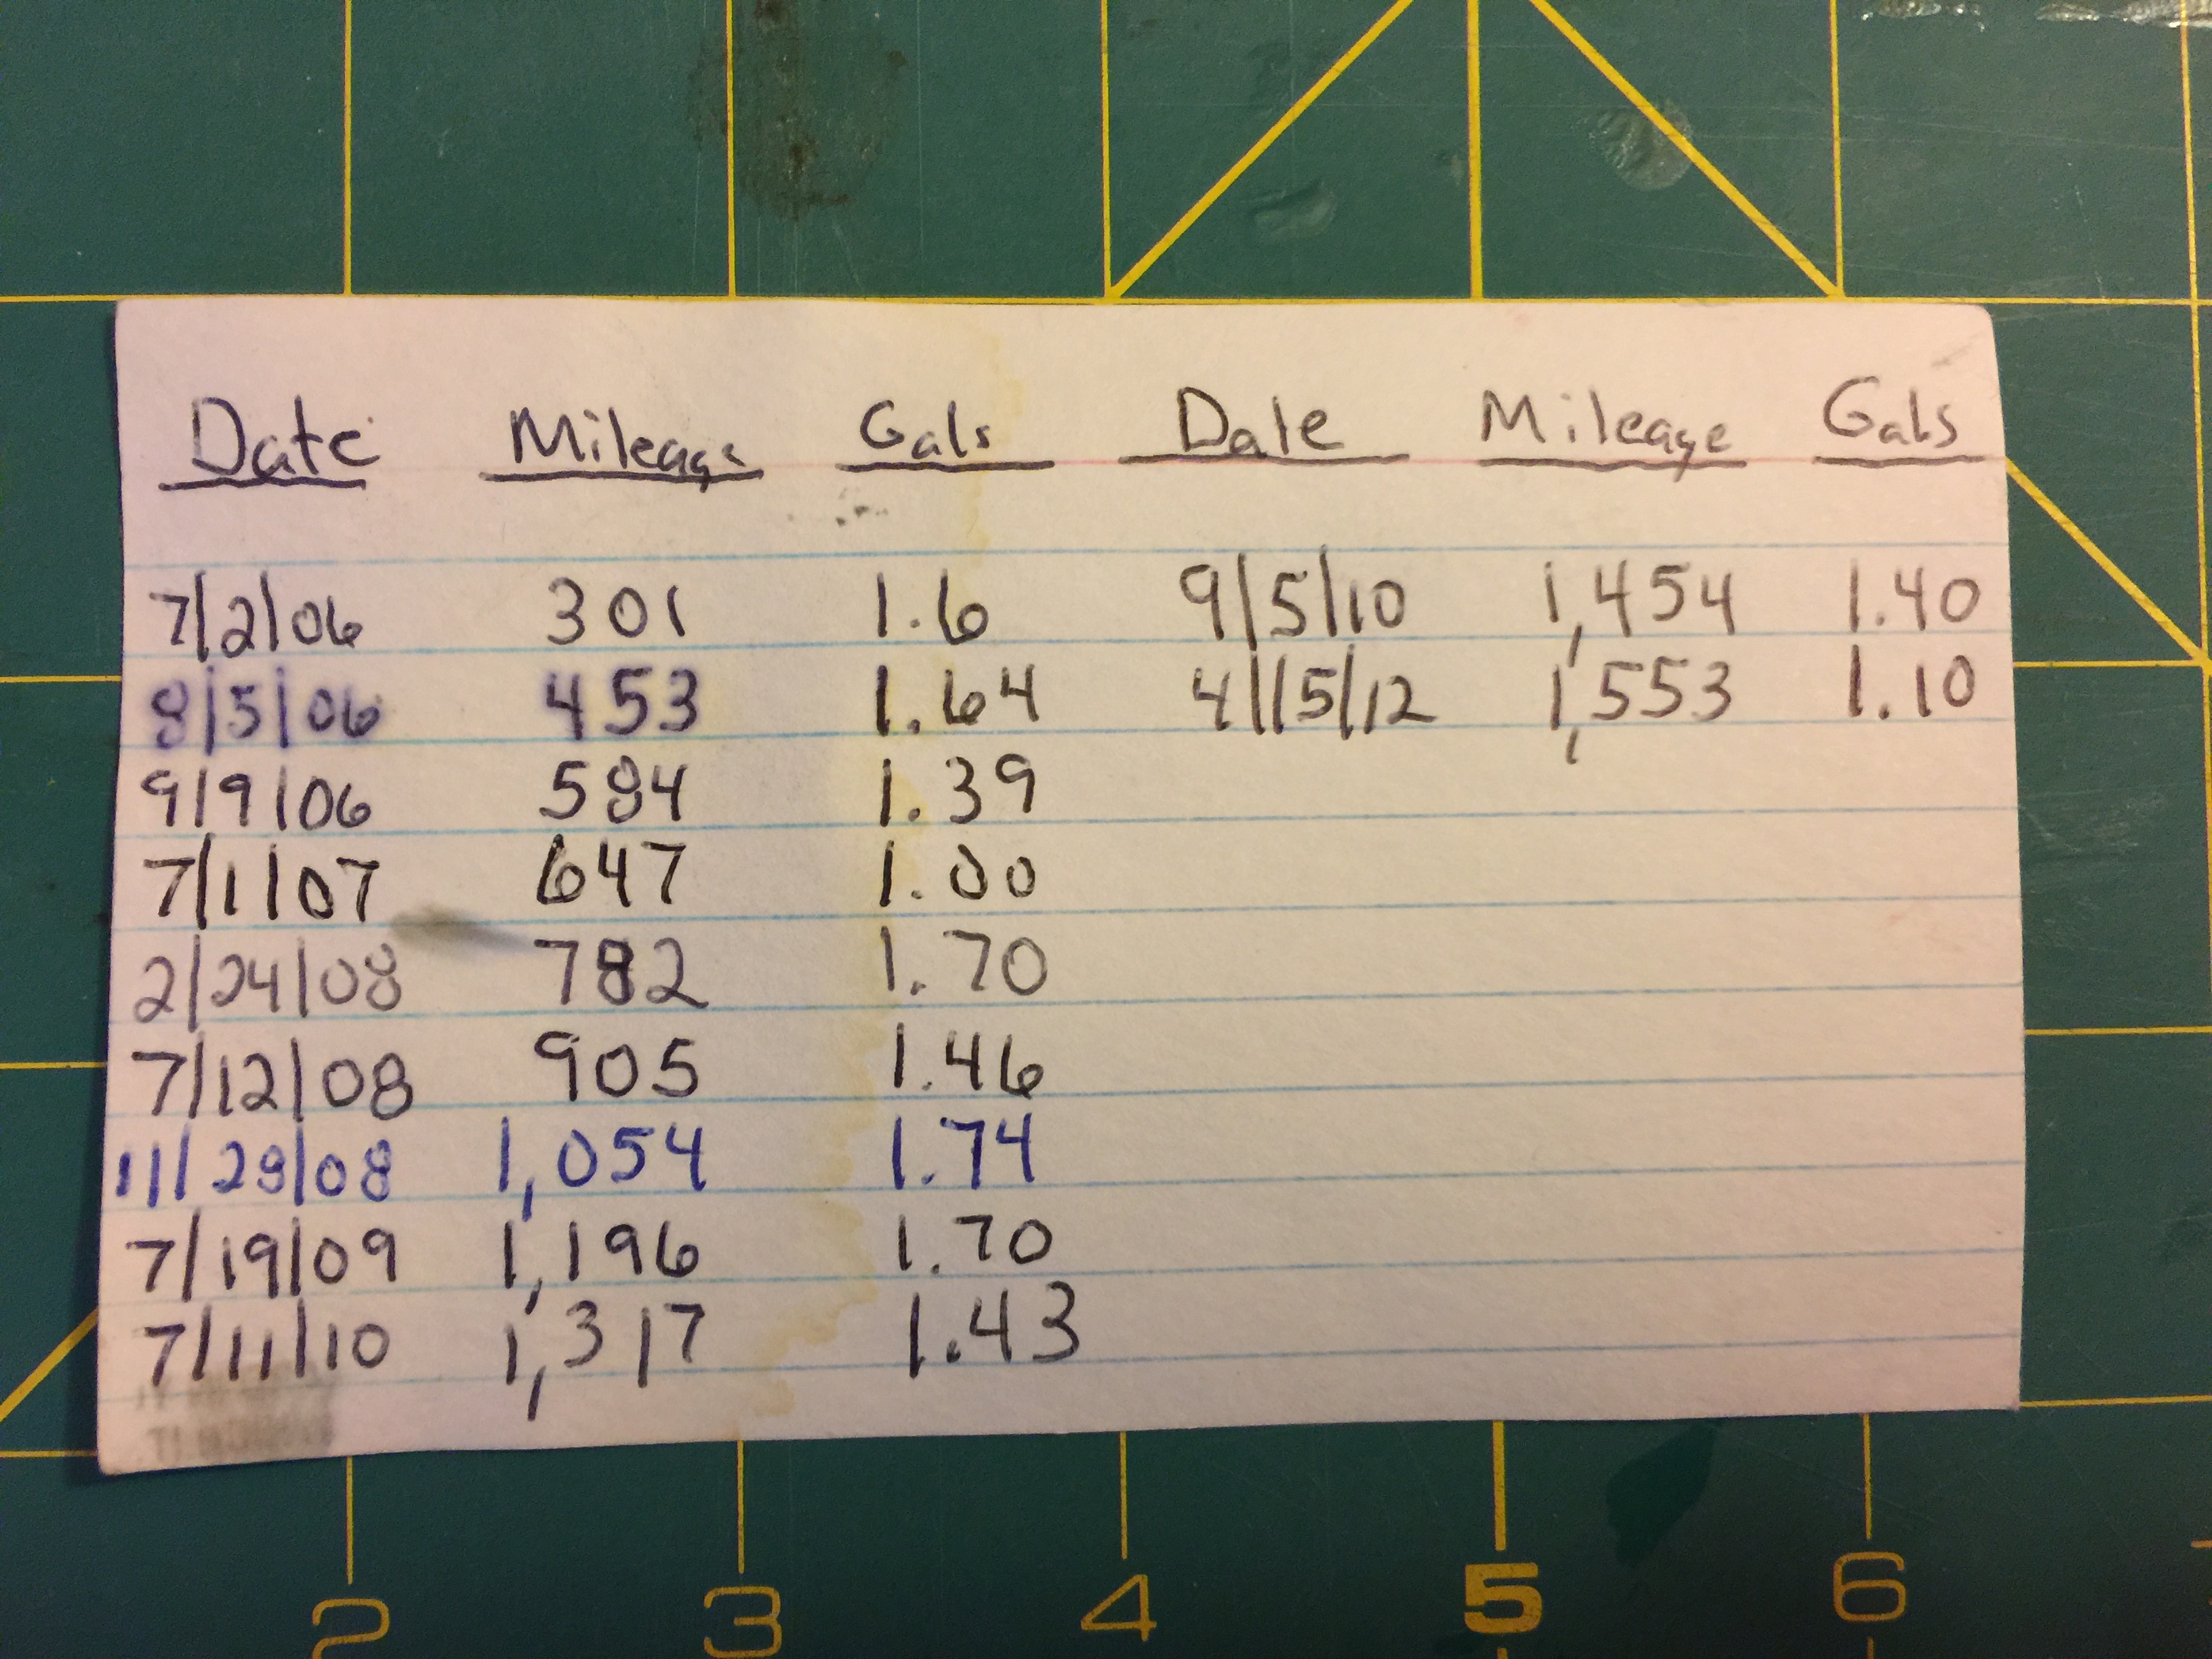 Date Mileage Gals Date Mileage Gals
7/2/06 301 1.6 9/5/10 1,454 1.40
8/5/06 453 1.64 4/15/12 1,553 1.10
9/9/06 584 1.39
7/1/07 647 1.00
2/24/08 782 1.70
7/12/08 905 1.46
11/28/08 1,054 1.74
7/19/09 1,196 1.70
7/11/10 1,317 1.43
2 3 4 5 6